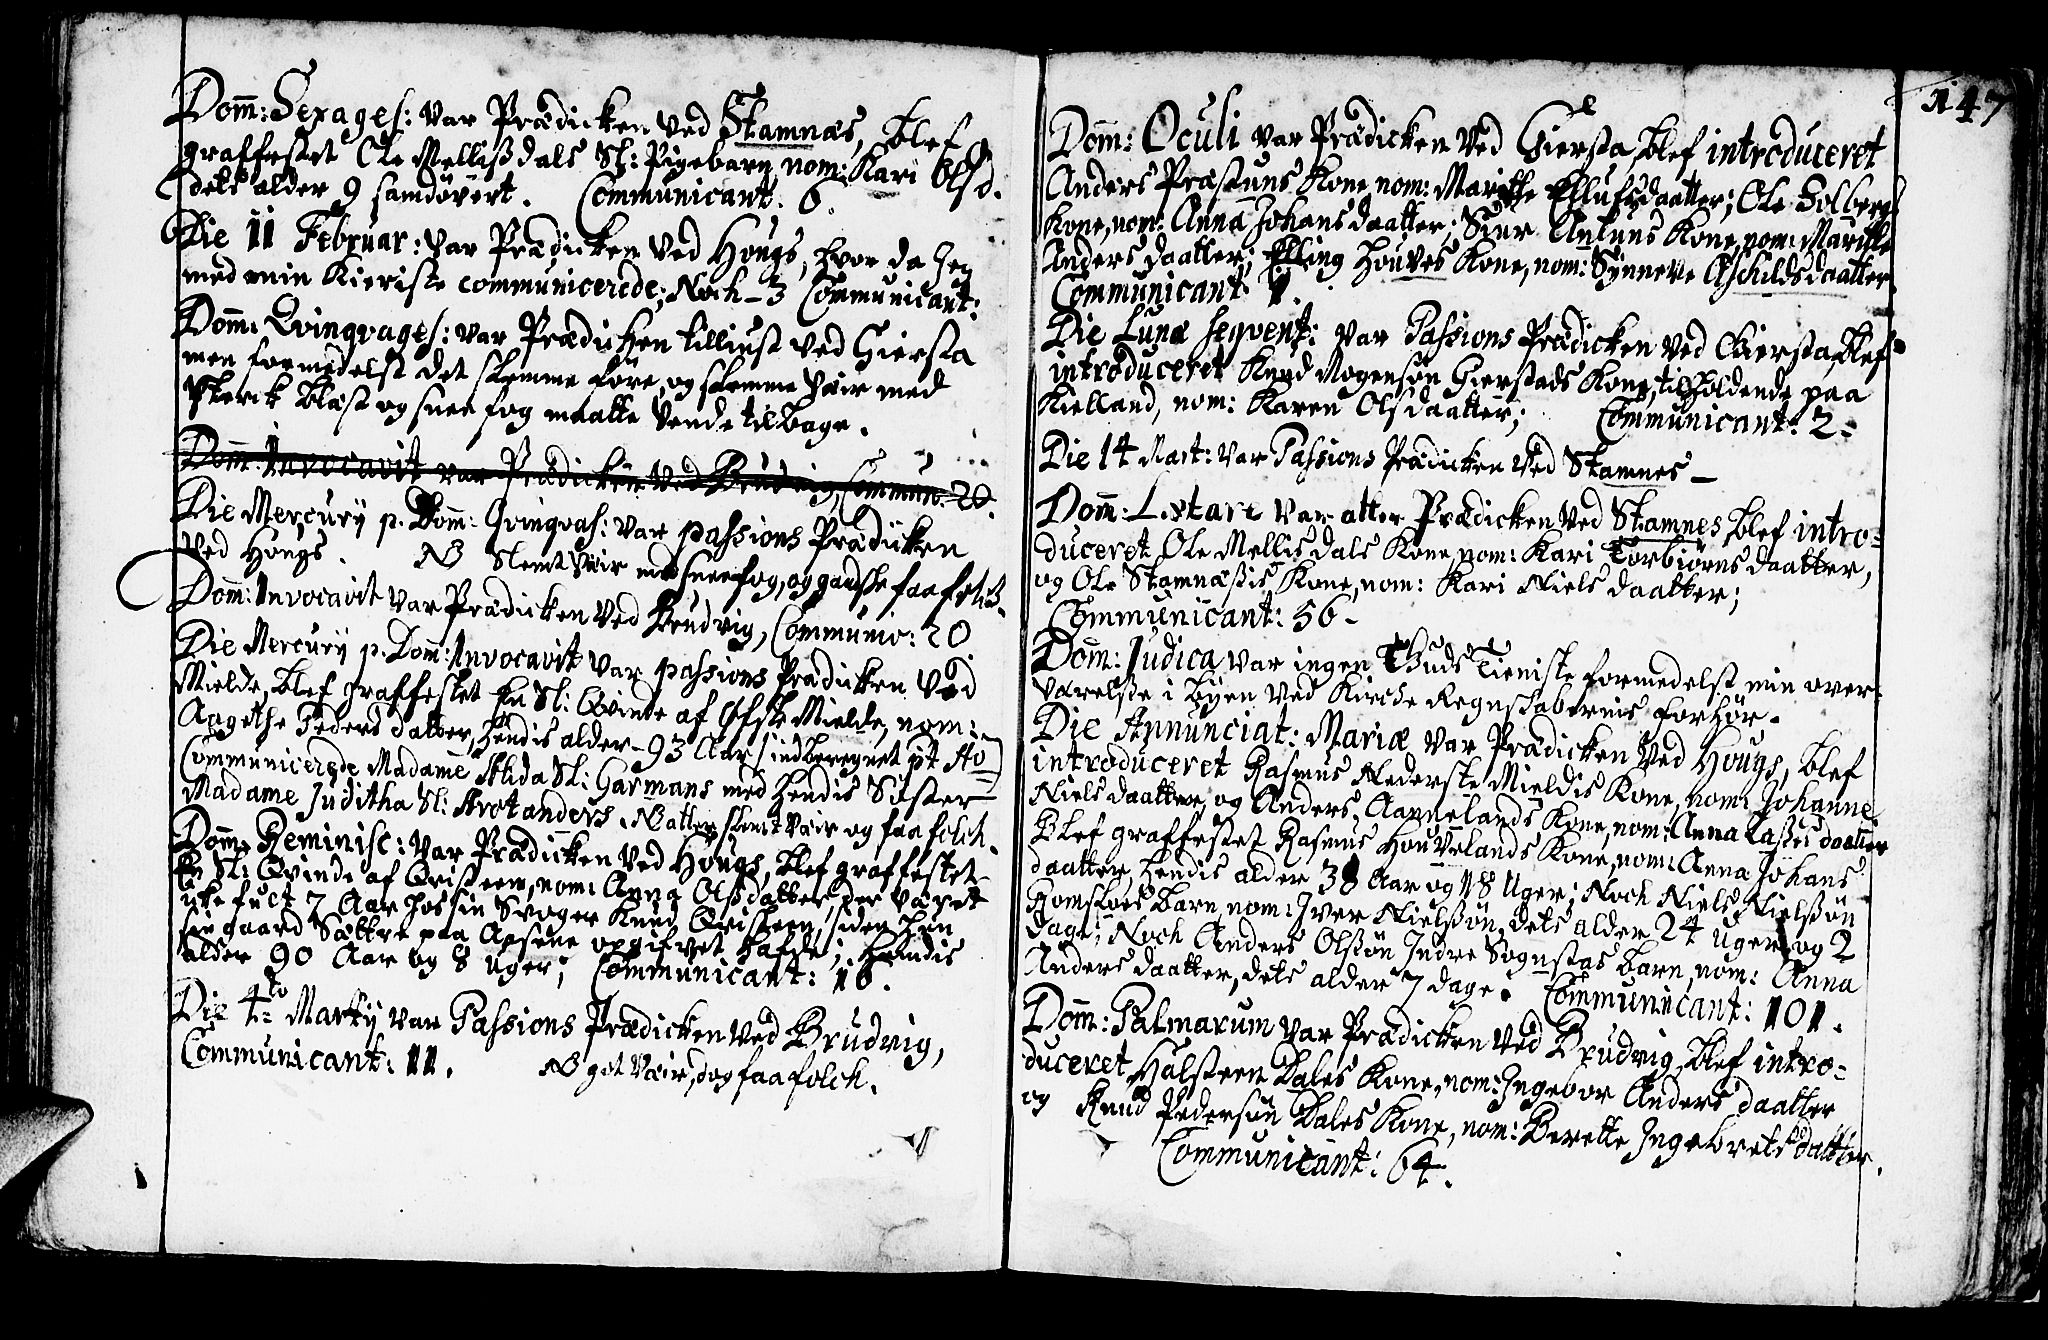 Dom̄: Sexages: var Prædicken ved Stamnæs, blef
graffestet Ole Mellisdals Sl: Pigebarn, nom: Kari Olsd.
dets alder 9 samdövert. Communicant. 6.
Die 11 Februar: var Prædicken ved Hougs, hvor da Jeg
med min Kieriste communicerede; Noch 3 Communicant:
Dom̄: Qvinqvages: var Prædicken tilliust ved Giersta
men formedelst det slemme före, og slemme Vair med
sterck blæst og snee fog maatte vende tilbage.
Dom̄: Invocavit var Prædicken ved Brudvig, Commun: 20.
Die Mercurij p. Dom̄: Qvinqvas: var passions Prædicken
ved Hougs. NB Slemt Vair med sneefog, og gandske faa folck.
Dom̄: Invocavit var Prædicken ved Brudvig, Communic: 20
Die Mercurij p. Dom̄: Invocavit var passions Prædicken ved
Mielde, blef graffestet En Sl: Qvinde af Öfste Mielde, nom:
Angethe Peders datter, hendis alder 93 Aar
Communicerede Madame Alida Sl: Garmans med hendis Söster
Madame Juditha Sl: Arotanders. NB atter slemt Vair og faa folch.
Dom̄: Reminisc: var Prædicken ved Hougs, blef graffestet
En Sl: Qvinde af Qvisteen, nom: Anna Olsdatter, der været
7 Aar hos sin Svoger Knud Qvisteen, siden hun
sin gaard Sættre paa Apsene opgifvet hafde; hendis
alder 90 Aar og 8 uger; Communicant: 16.
Die 4to Martij var Passions Prædicken ved Brudvig,
Communicant: 11. NB got Vair, dog faa folch.
147
Dom̄: Oculi var Prædicken ved Giersta, blef introduceret
Anders Præstuns Kone, nom: Marithe Ellufsdaatter; Ole Solbergs
Kone, nom: Anna Johansdaatter; Siur Antuns Kone, nom: Marithe
Anders daatter; Elling Houves Kone, nom: Synneve Aschildsdaatter.
Communicant
Die Lunæ seqvent: var Passions Prædicken ved Giersta, blef
introduceret Knud Mogensøn Gierstads Kone, tilholdende paa
Kielland, nom: Karen Olsdaatter; Communicant: 2.
Die 14 Mart: var Passions Prædicken ved Stamnes
Dom̄: Lætare var atter Prædicken ved Stamnes, blef intro-
duceret Ole Mellisdals Kone, nom: Kari Torbiörns daatter,
og Ole Stamnæssis Kone, nom: Kari Niels daatter;
Communicant: 56
Dom̄: Judica var ingen Guds Tieniste formedelst min over-
værelse i byen ved Kirche Regnskabernis forhör.
Die Annunciat: Mariæ var Prædicken ved Hougs, blef
introduceret Rasmus Nederste Mieldis Kone, nom: Johanne
Niels daatter, og Anders Aannelands Kone, nom: Anna Lasses daatter
Blef graffestet Rasmus Houvlands Kone, nom: Anna Johans
daatter, hendis alder 38 Aar og 18 Uger; Noch Niels Nielssön
Romsloes barn, nom: Iver Nielssön, dets alder 24 Uger og 2
Dage; Noch Anders Olssön Indre Sognstas barn, nom: Anna
Anders daatter, dets alder 7 dage. Communicant: 101.
Dom̄: Palmarum var Prædicken ved Brudvig, blef intro-
duceret Halsteen Dales Kone, nom: Ingebor Anders daatter
og Knud Pedersön Dales Kone, nom: Berette Ingebrets datter.
Communicant: 64.